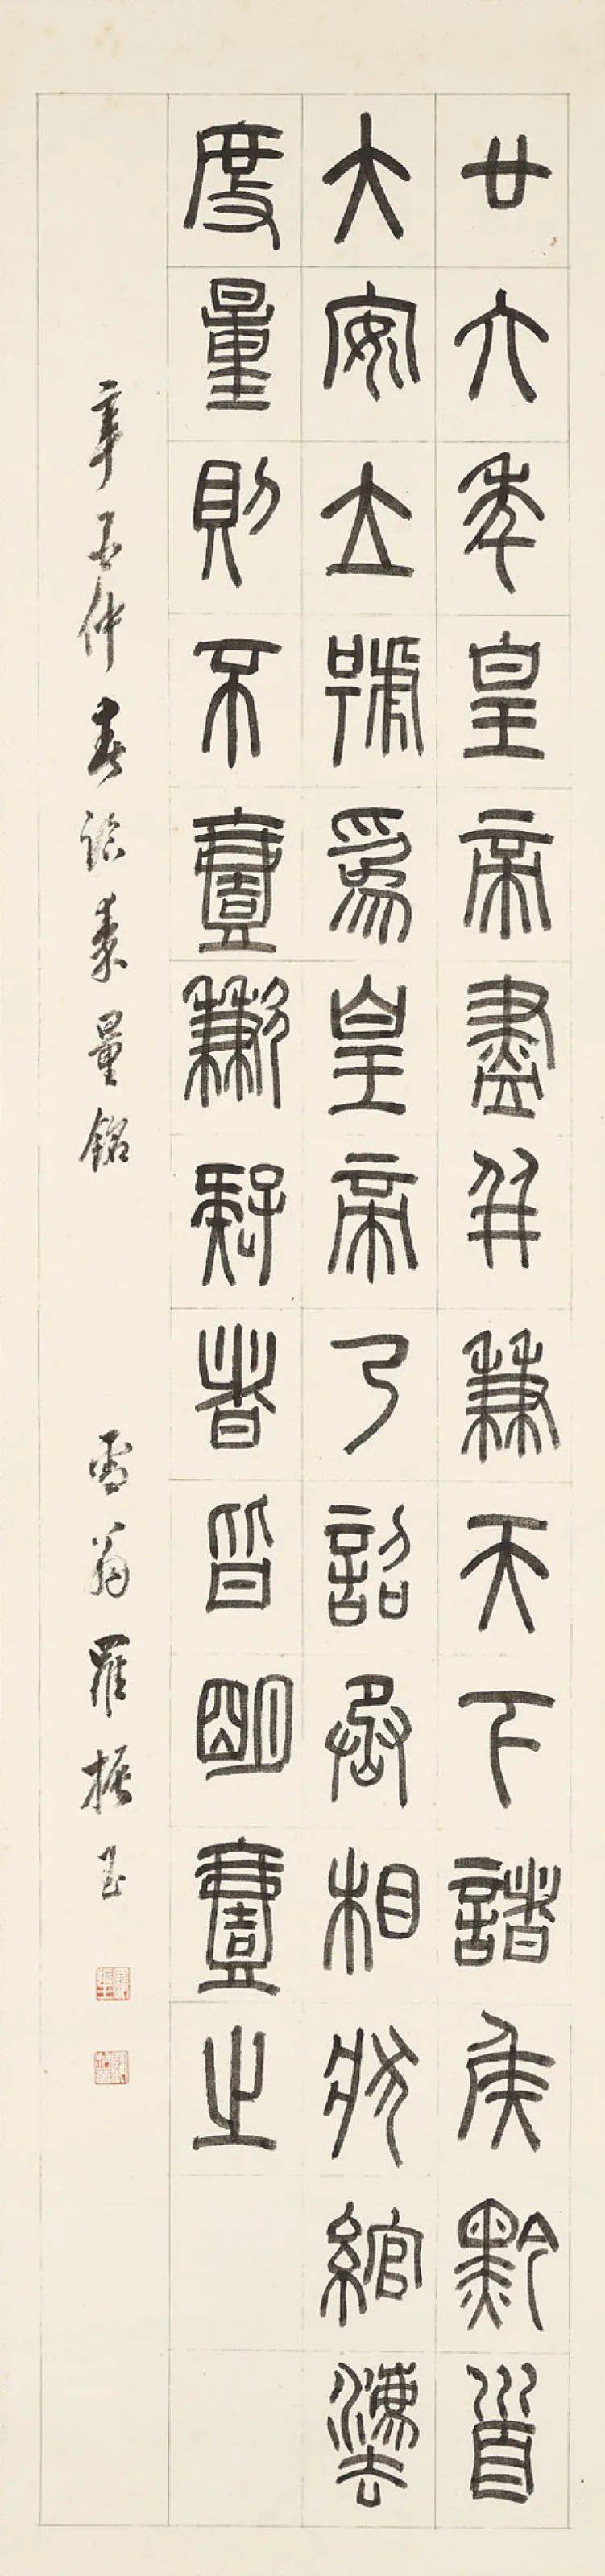 廿六年皇帝盡并兼天下諸侯黔首
大安立號為皇帝乃詔丞相狀綰灋
度量則不壹歉疑者皆明壹之
辛未仲春臨秦量銘 雪翁羅振玉